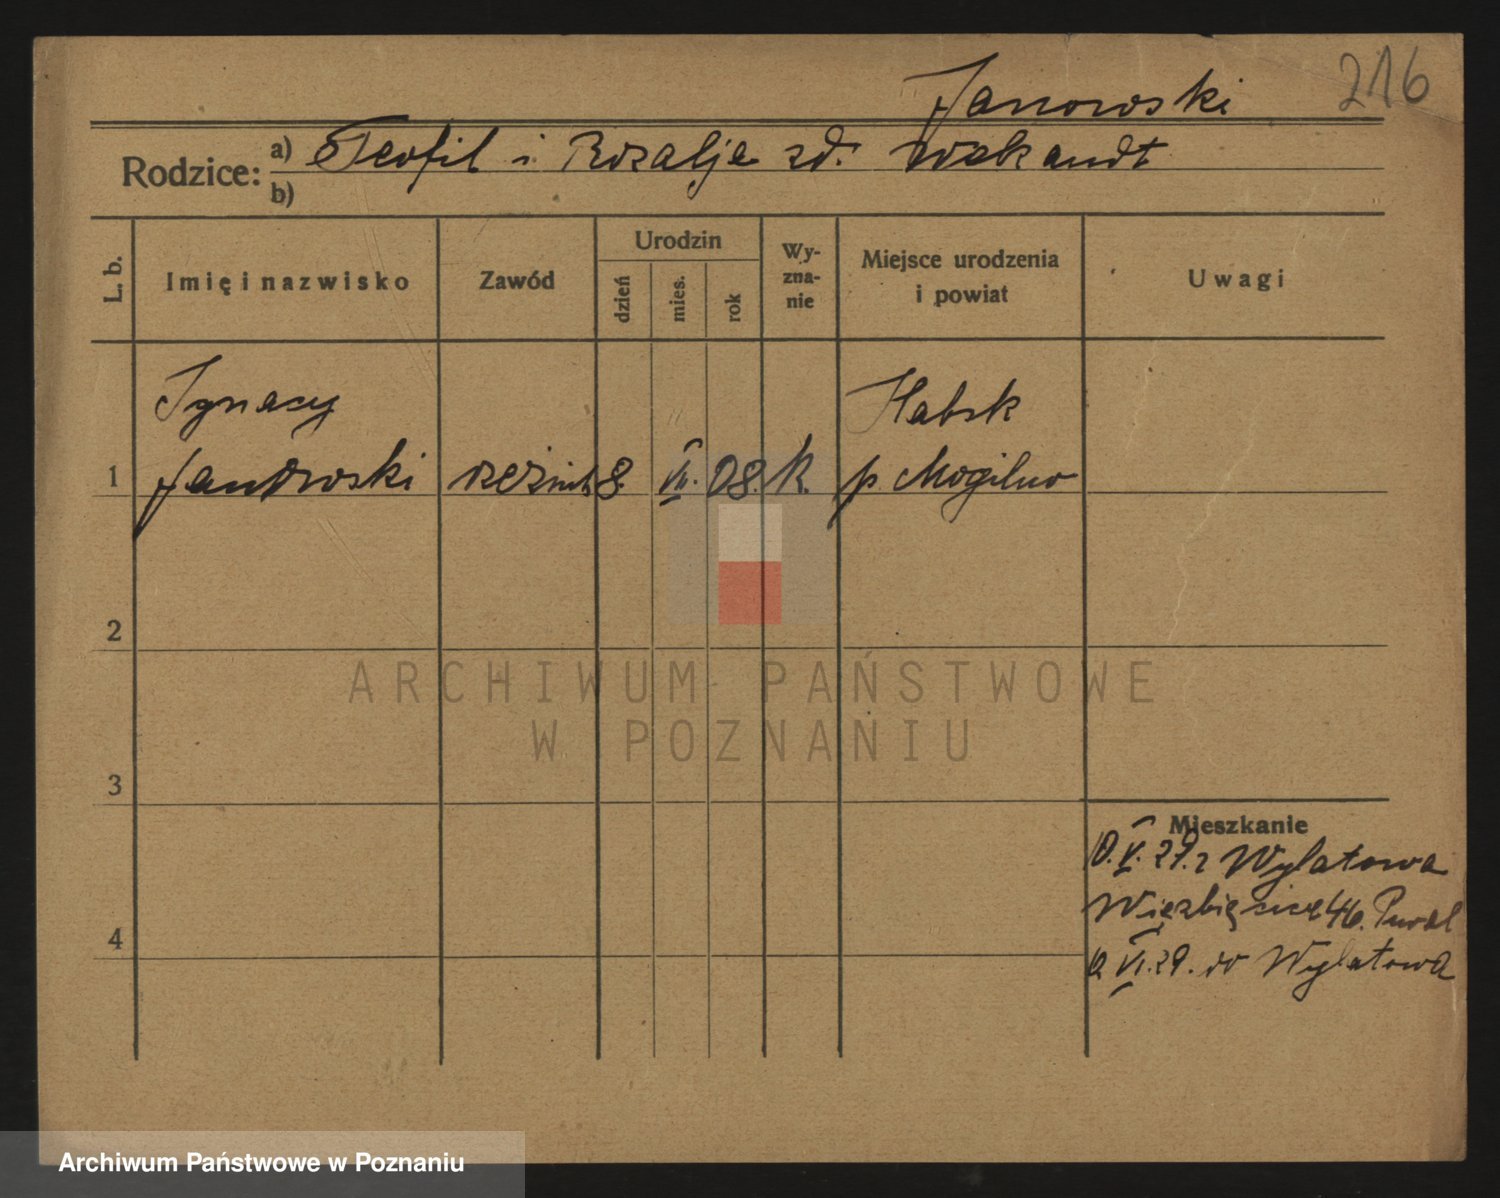 216
Janowski
Rodzice: a) Teofil i Rozalja zd. Wekandt
b)
L. b. Imię i nazwisko Zawód Urodzin dzień mies. rok Wyznanie Miejsce urodzenia i powiat Uwagi
Ignacy Habsk
1 Janowski rzeźnik 8. VI. 08. K. p. Mogilno
2
3
Mieszkanie
10. V. 29. z Wylatowa
46.
4
VI. 29. do Wylatowa
ARCHIWUM PAŃSTWOWE
W POZNANIU
Archiwum Państwowe w Poznaniu